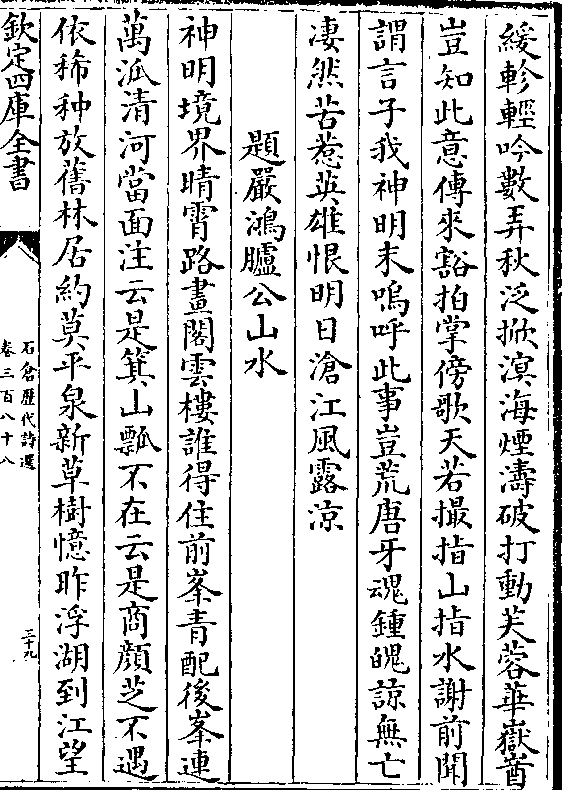 緩軫輕吟數弄秋泛掀溟海煙濤破打動芙蓉華嶽酋
豈知此意傳來豁拍掌傍歌天若撮指山指水謝前聞
謂言子我神明末嗚呼此事豈荒唐牙魂鍾魄諒無亡
凄然苦惹英雄恨明日滄江風露涼
題嚴鴻臚公山水
神明境界晴霄路畫閣雲樓誰得住前峯青配後峯連
萬派清河當面注云是箕山瓢不在云是商顔芝不遇
依稀种放舊林居約莫平泉新草樹憶昨浮湖到江望
欽定四庫全書
石倉歴代詩選
卷三百八十八
二十九